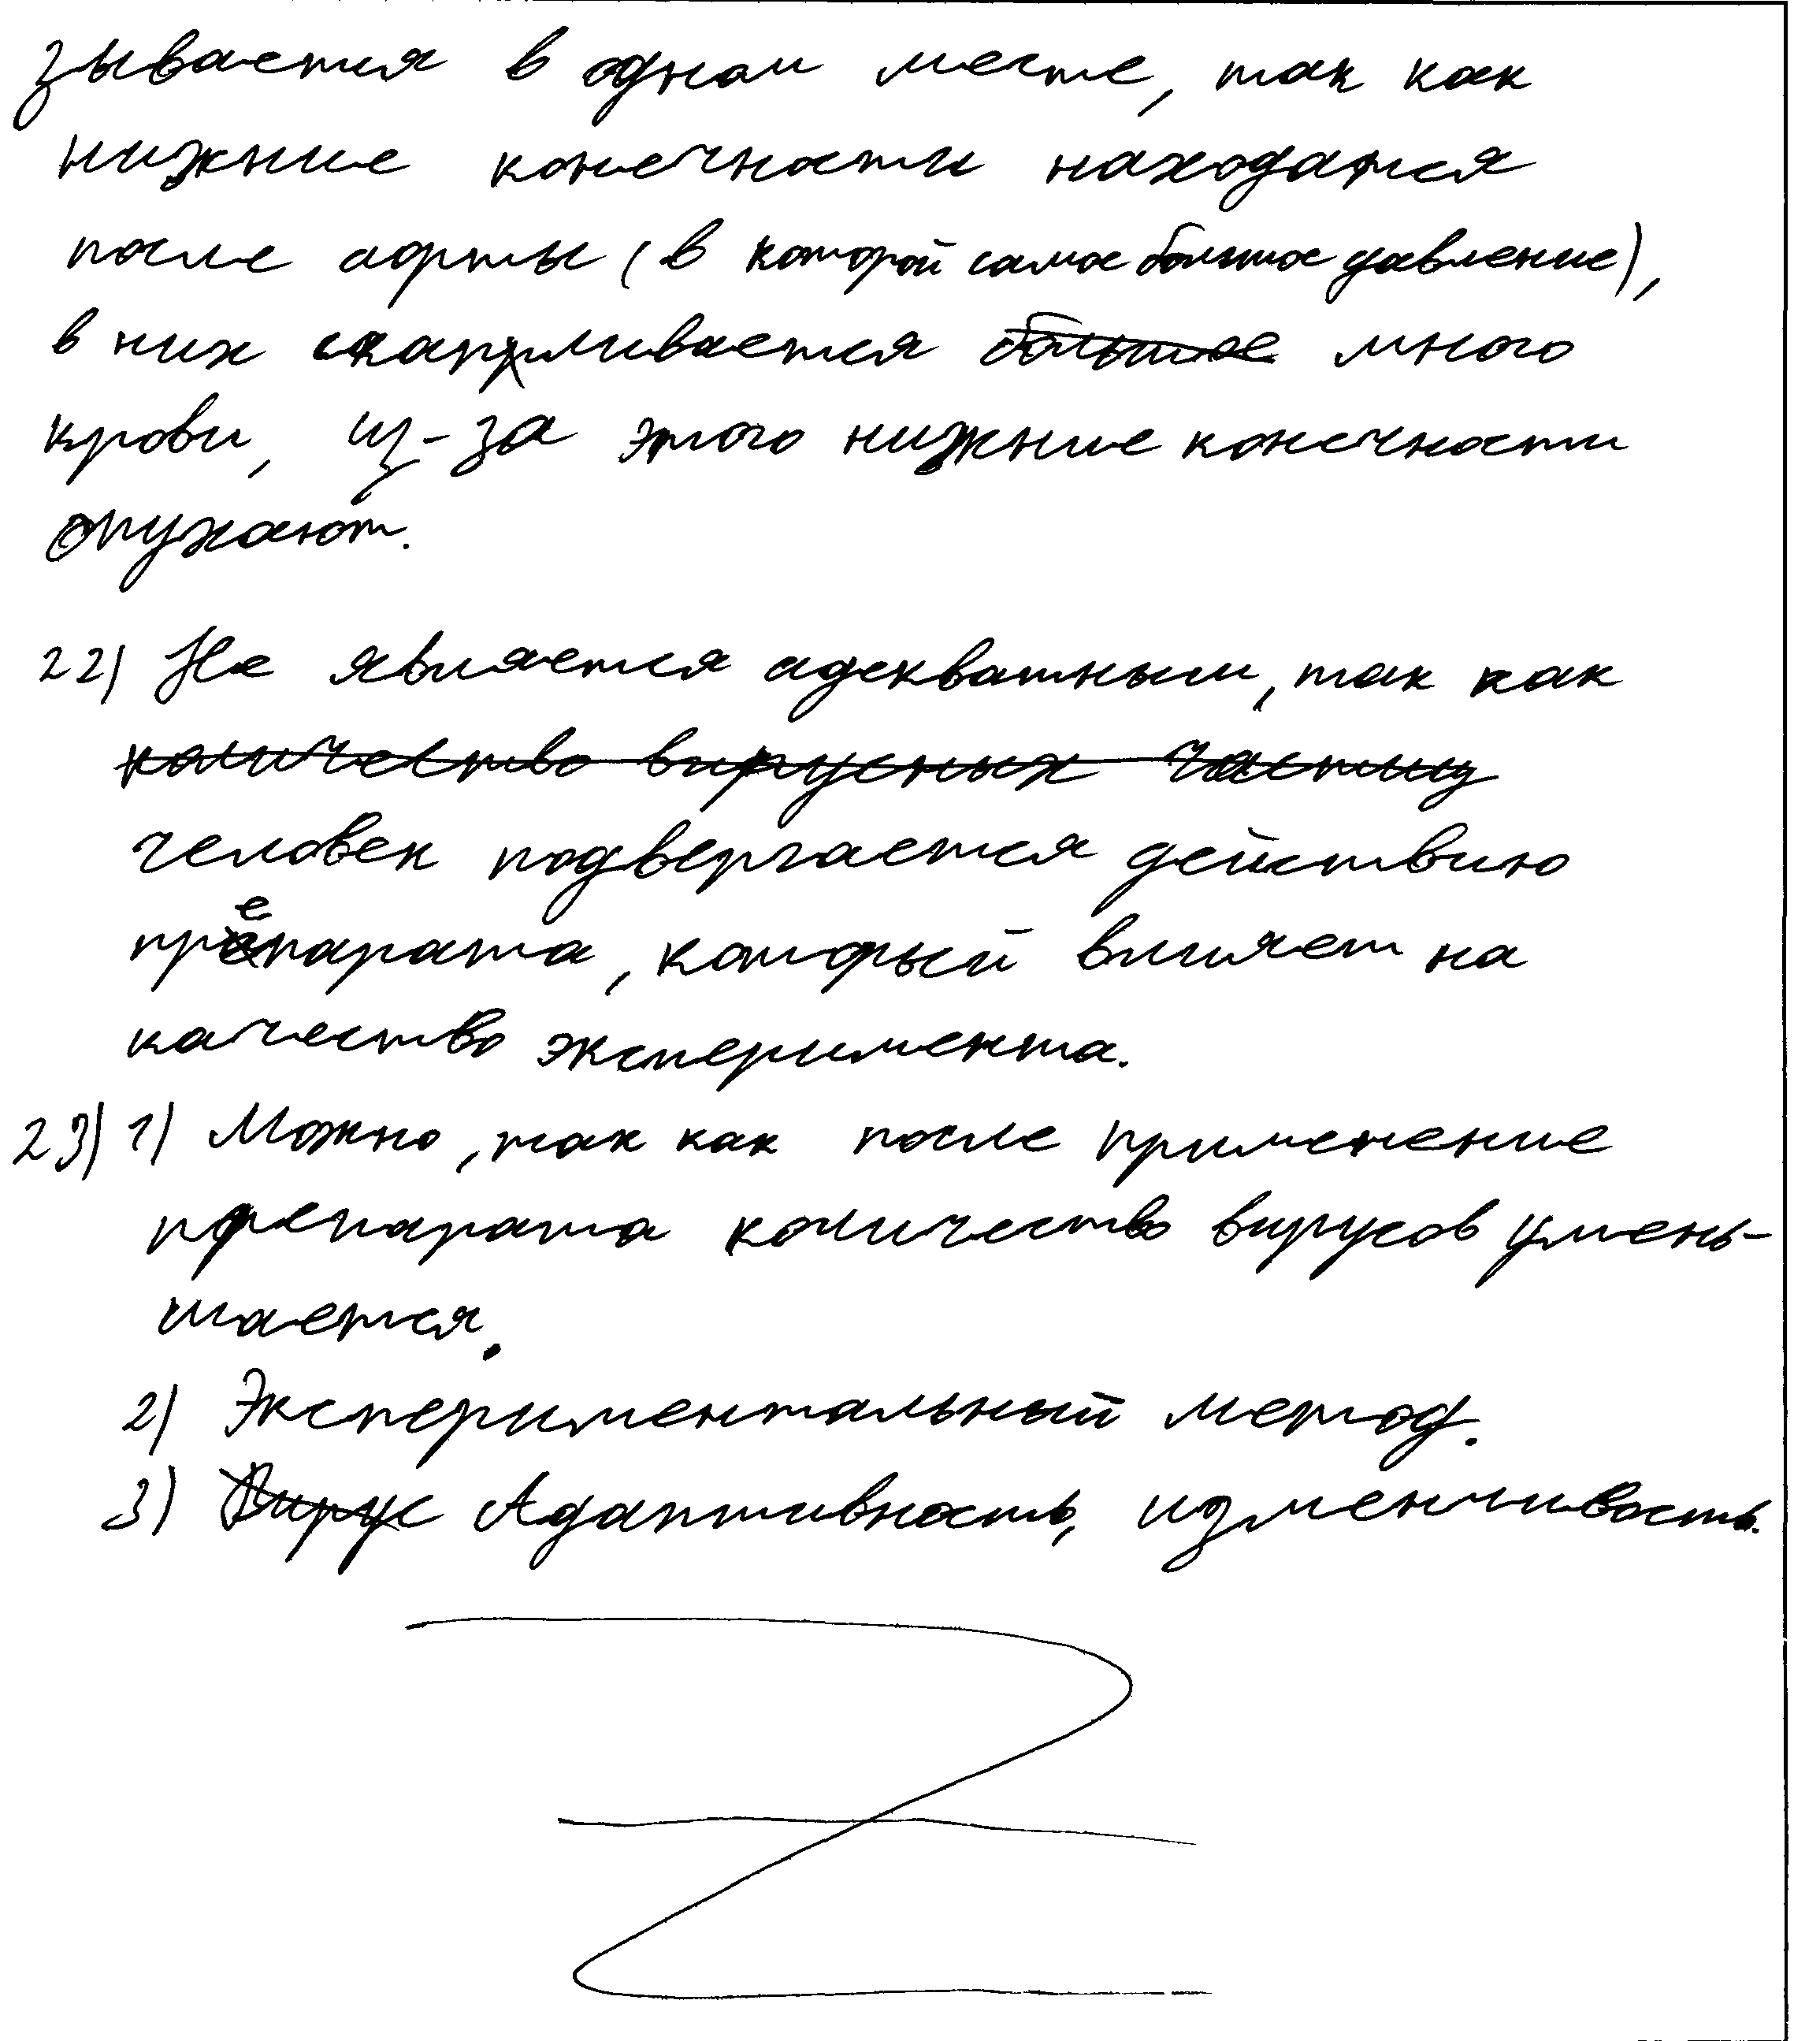 зывается в одном месте, так как
нижние конечности находятся
после аорты (в которой самое большое давление),
в них скапливается ~~большое~~ много
крови, из-за этого нижние конечности
опухают.
22) Не является адекватным, так как
~~количество вирусных частиц~~
человек подвергается действию
препарата, который влияет на
качество эксперимента.
23) 1) Можно, так как после применение
препарата количество вирусов умень-
шается.
2) Экспериментальный метод.
3) ~~Вирус~~ Адаптивность, изменчивость.